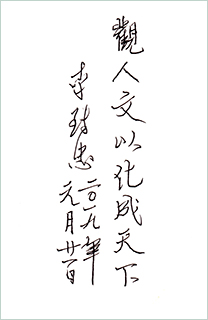 觀人文以化成天下
李 忠
二〇一九年
元月廿一日